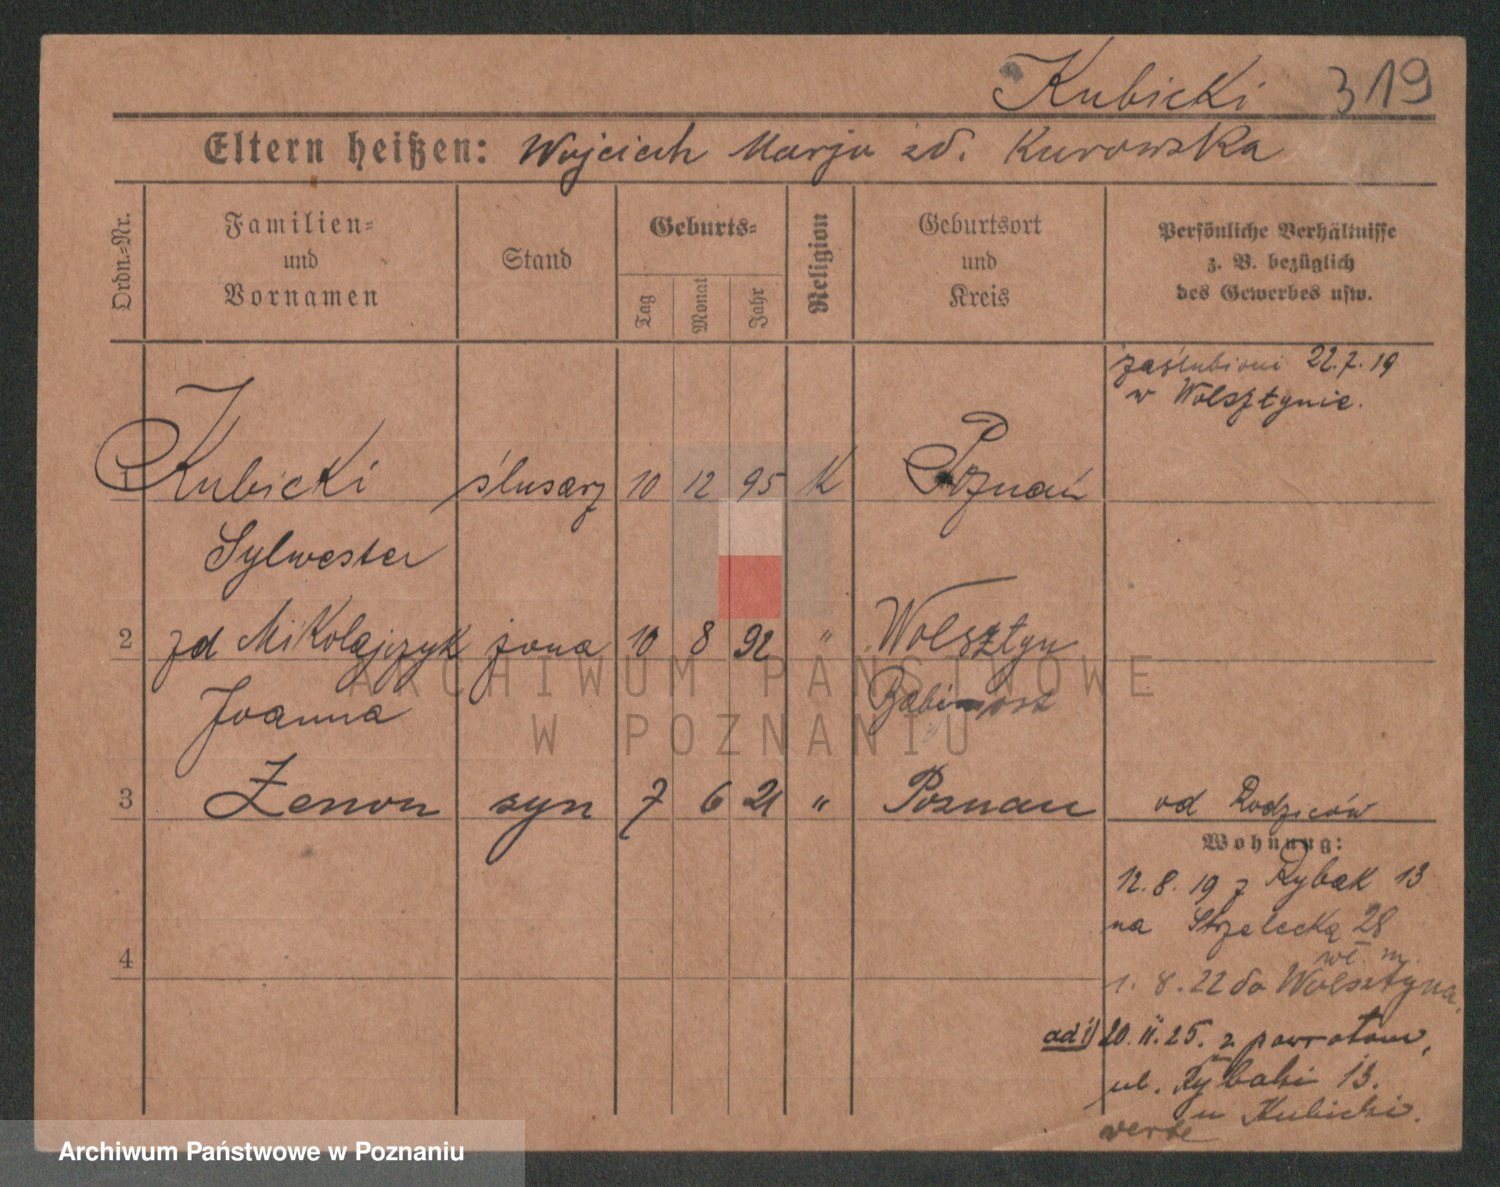 Kubicki 319
Eltern heißen: Wojciech Marja zd. Kurowska
Ordn.-Nr.
Familien-
und
Vornamen
Stand
Geburts-
Tag
Monat
Jahr
Religion
Geburtsort
und
Kreis
Persönliche Verhältnisse
z. B. bezüglich
des Gewerbes usw.
zaślubieni 22.7.19
w Wolsztynie.
1 Kubicki ślusarz 10 12 95 K Poznań
Sylwester
2 zd Mikolajczyk żona 10 8 92 " Wolsztyn
Joanna Babimost
3 Zenon syn 7 6 21 " Poznan od Rodziców
Wohnung:
12.8.19 z Rybak 13
na Strzelecką 28
wł. m.
4
1.8.22 do Wolsztyna,
ad 1) 20.II.25. z powrotem,
ul. Rybaki 13.
u Kubicki.
ARCHIWUM PAŃSTWOWE
W POZNANIU
Archiwum Państwowe w Poznaniu